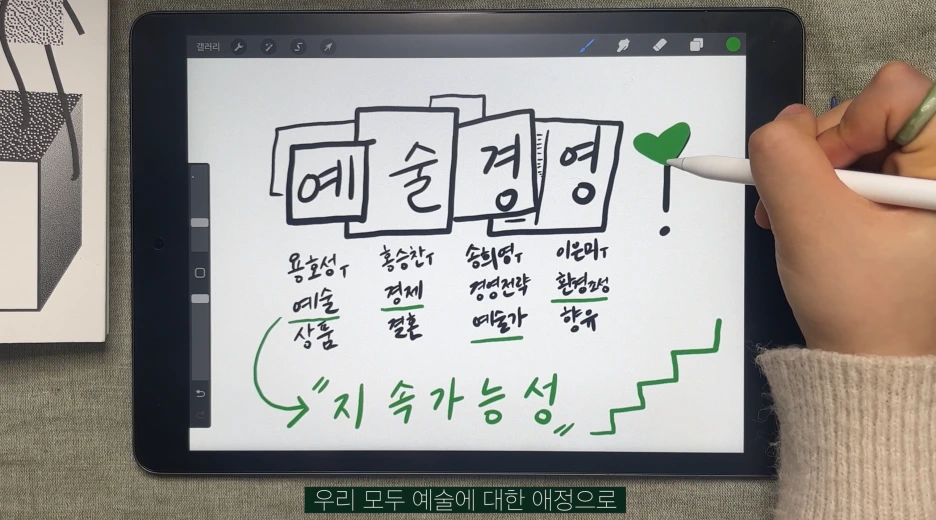 갤러리
예술경영
용호성T 홍승찬T 송희영T 이은미T
예술 경제 경영전략 환경조성
상품 결혼 예술가 향유
"지속가능성"
우리 모두 예술에 대한 애정으로